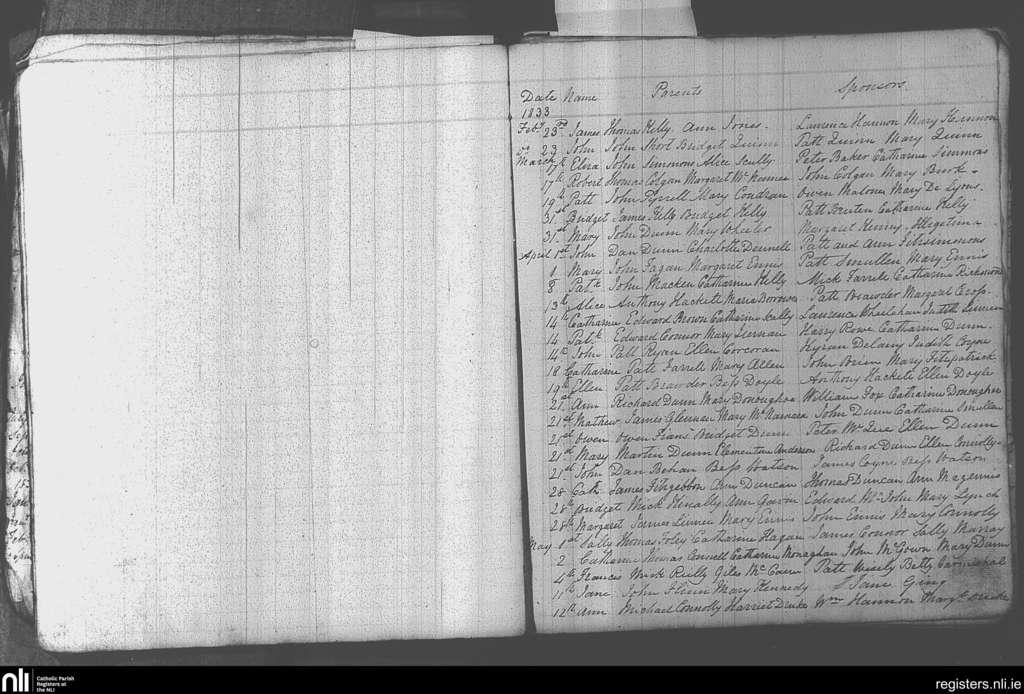 Date Name Parents Sponsors
1833
Feby 23rd James Thomas Kelly Ann Jones. Laurence Hannon Mary Hannon
Do 23 John John Short Bridget Quinn Patt Quinn Mary Quinn
March 17th Eliza John Simmons Alice Scully Peter Baker Catharine Simmons
17th Robert Thomas Colgan Margaret John Colgan Mary Burk
19th Patt John Tyrrell Mary Condran Owen Malone Mary De Lyons.
31st Budget James Kelly Budget Kelly Patt Catharine Kelly
31st Mary John Dunn Mary Wheeler Margaret Kenny. Illegitima
April 1st John Dan Dunn Charlotte Dennell Patt and Ann Fitzsimmons
8 Mary John Fagan Margaret Ennis Patt Smullen Mary Ennis
8 Patk John Macken Catharine Kelly Mick Farrell Catharine
13th Alice Anthony Hackett Maria Patt Brawder Margaret Cross.
14th Catharine Edward Brown Catharine Scully Laurence Wheelahan Judith
14 Patk Edward Connor Mary Harry Rowe Catharine Dunn.
14th John Patt Ryan Ellen Corcoran Kyran Delany Judith Coyne
18 Catharine Patt Farrell Mary Allen John Brien Mary Fitzpatrick
19th Ellen Patt Brawder Bess Doyle Anthony Hackett Ellen Doyle
21st Ann Richard Dunn Mary Donoughoe William Fox Catharine Donoughoe
21st Mathew James Glennan Mary McNamara John Dunn Catharine Smullen
21st Owen Owen Budget Dunn Peter Ellen Dunn
21st Mary Martin Dunn Clementina Anderson Richard Dunn Ellen Connolly
21st John Dan Behan Bess Watson James Coyne Bess Watson
28 Cath James Fitzgebbon Ann Duncan Thomas Duncan Ann Magennis
28th Budget Mick Kinally Ann Gavin Edward McJohn Mary Lynch
28th Margaret James Mary Ennis John Ennis Mary Connolly
May 1st Sally Thomas Foley Catharine Hagan James Connor Sally Murray
2 Catharine Thomas Connell Catharine Monaghan John McGown Mary Dunn
4th Frances Mick Reilly Giles McCann Patt Betty
11th Jane John Flinn Mary Kennedy Jane Ging
12th Ann Michael Connolly Harriet Drake Wm Hannon Margt Drake
nli
Catholic Parish
Registers at
the NLI
registers.nli.ie